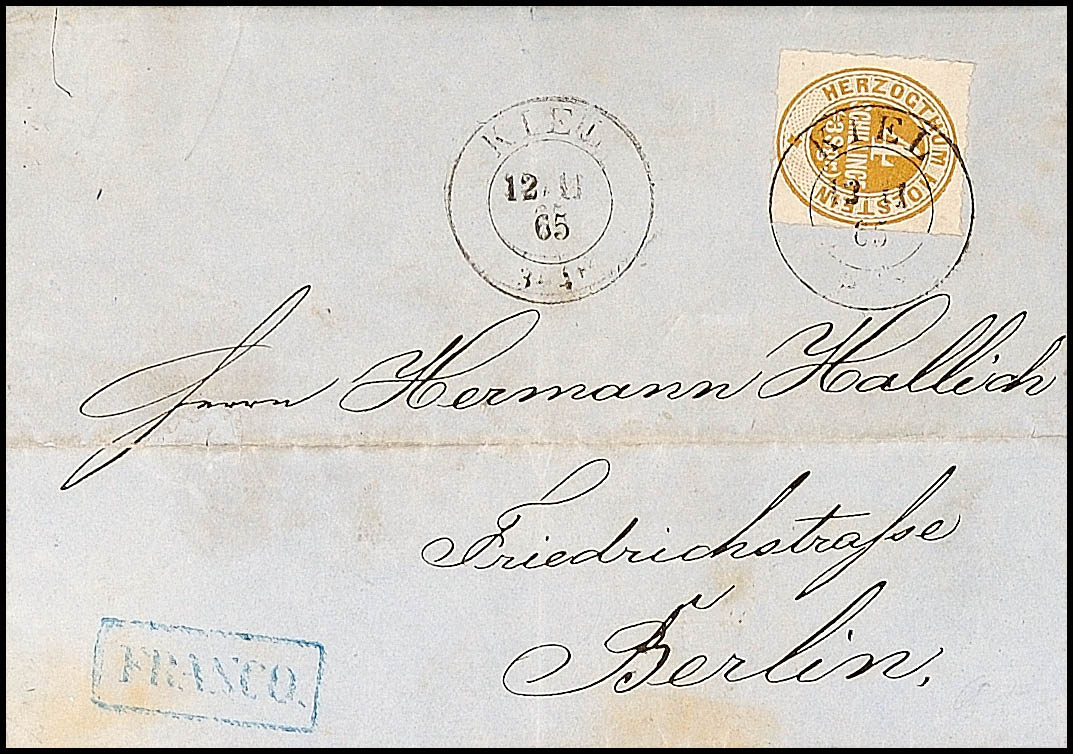 HERZOGTHUM HOLSTEIN
SCHILLING
KIEL
65
KIEL
12
65
Herrn Hermann Hallich
Friedrichstraſse
Berlin.
FRANCO.